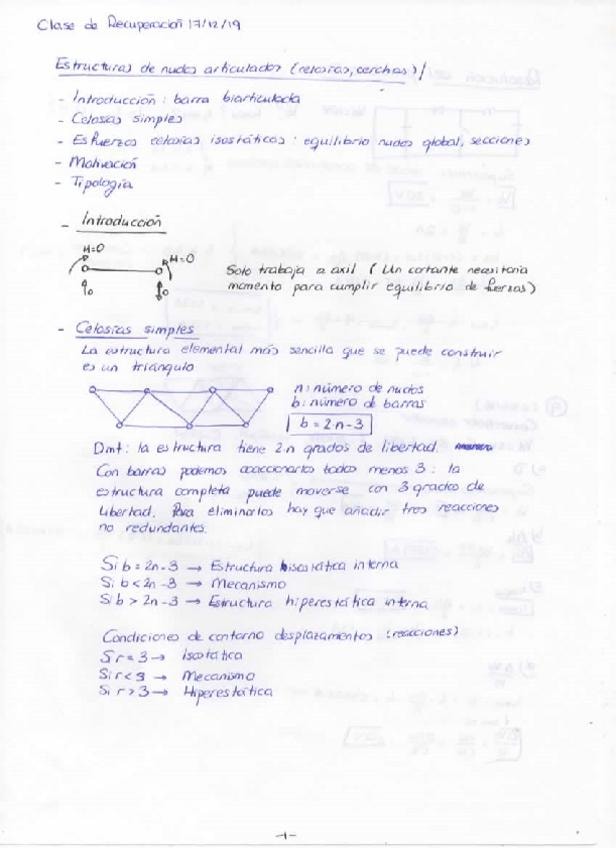 Clase de Recuperación 17/12/19
Estructuras de nudos articulados (celosías, cerchas)/
- Introducción: barra biarticulada
- Celosías simples
- Esfuerzos celosías isostáticas: equilibrio nudos global, secciones
- Motivación
- Tipología
- Introducción
M=0
M=0
Solo trabaja a axil (Un cortante necesitaría
momento para cumplir equilibrio de fuerzas)
- Celosías simples
La estructura elemental más sencilla que se puede construir
es un triángulo
n: número de nudos
b: número de barras
b = 2·n-3
Dmt: la estructura tiene 2·n grados de libertad.
Con barras podemos coaccionarlos todos menos 3: la
estructura completa puede moverse con 3 grados de
libertad. Para eliminarlos hay que añadir tres reacciones
no redundantes.
Si b = 2n-3 → Estructura isostática interna
Si b < 2n-3 → Mecanismo
Si b > 2n-3 → Estructura hiperestática interna
Condiciones de contorno desplazamientos (reacciones)
Si r = 3 → Isostática
Si r < 3 → Mecanismo
Si r > 3 → Hiperestática
-1-